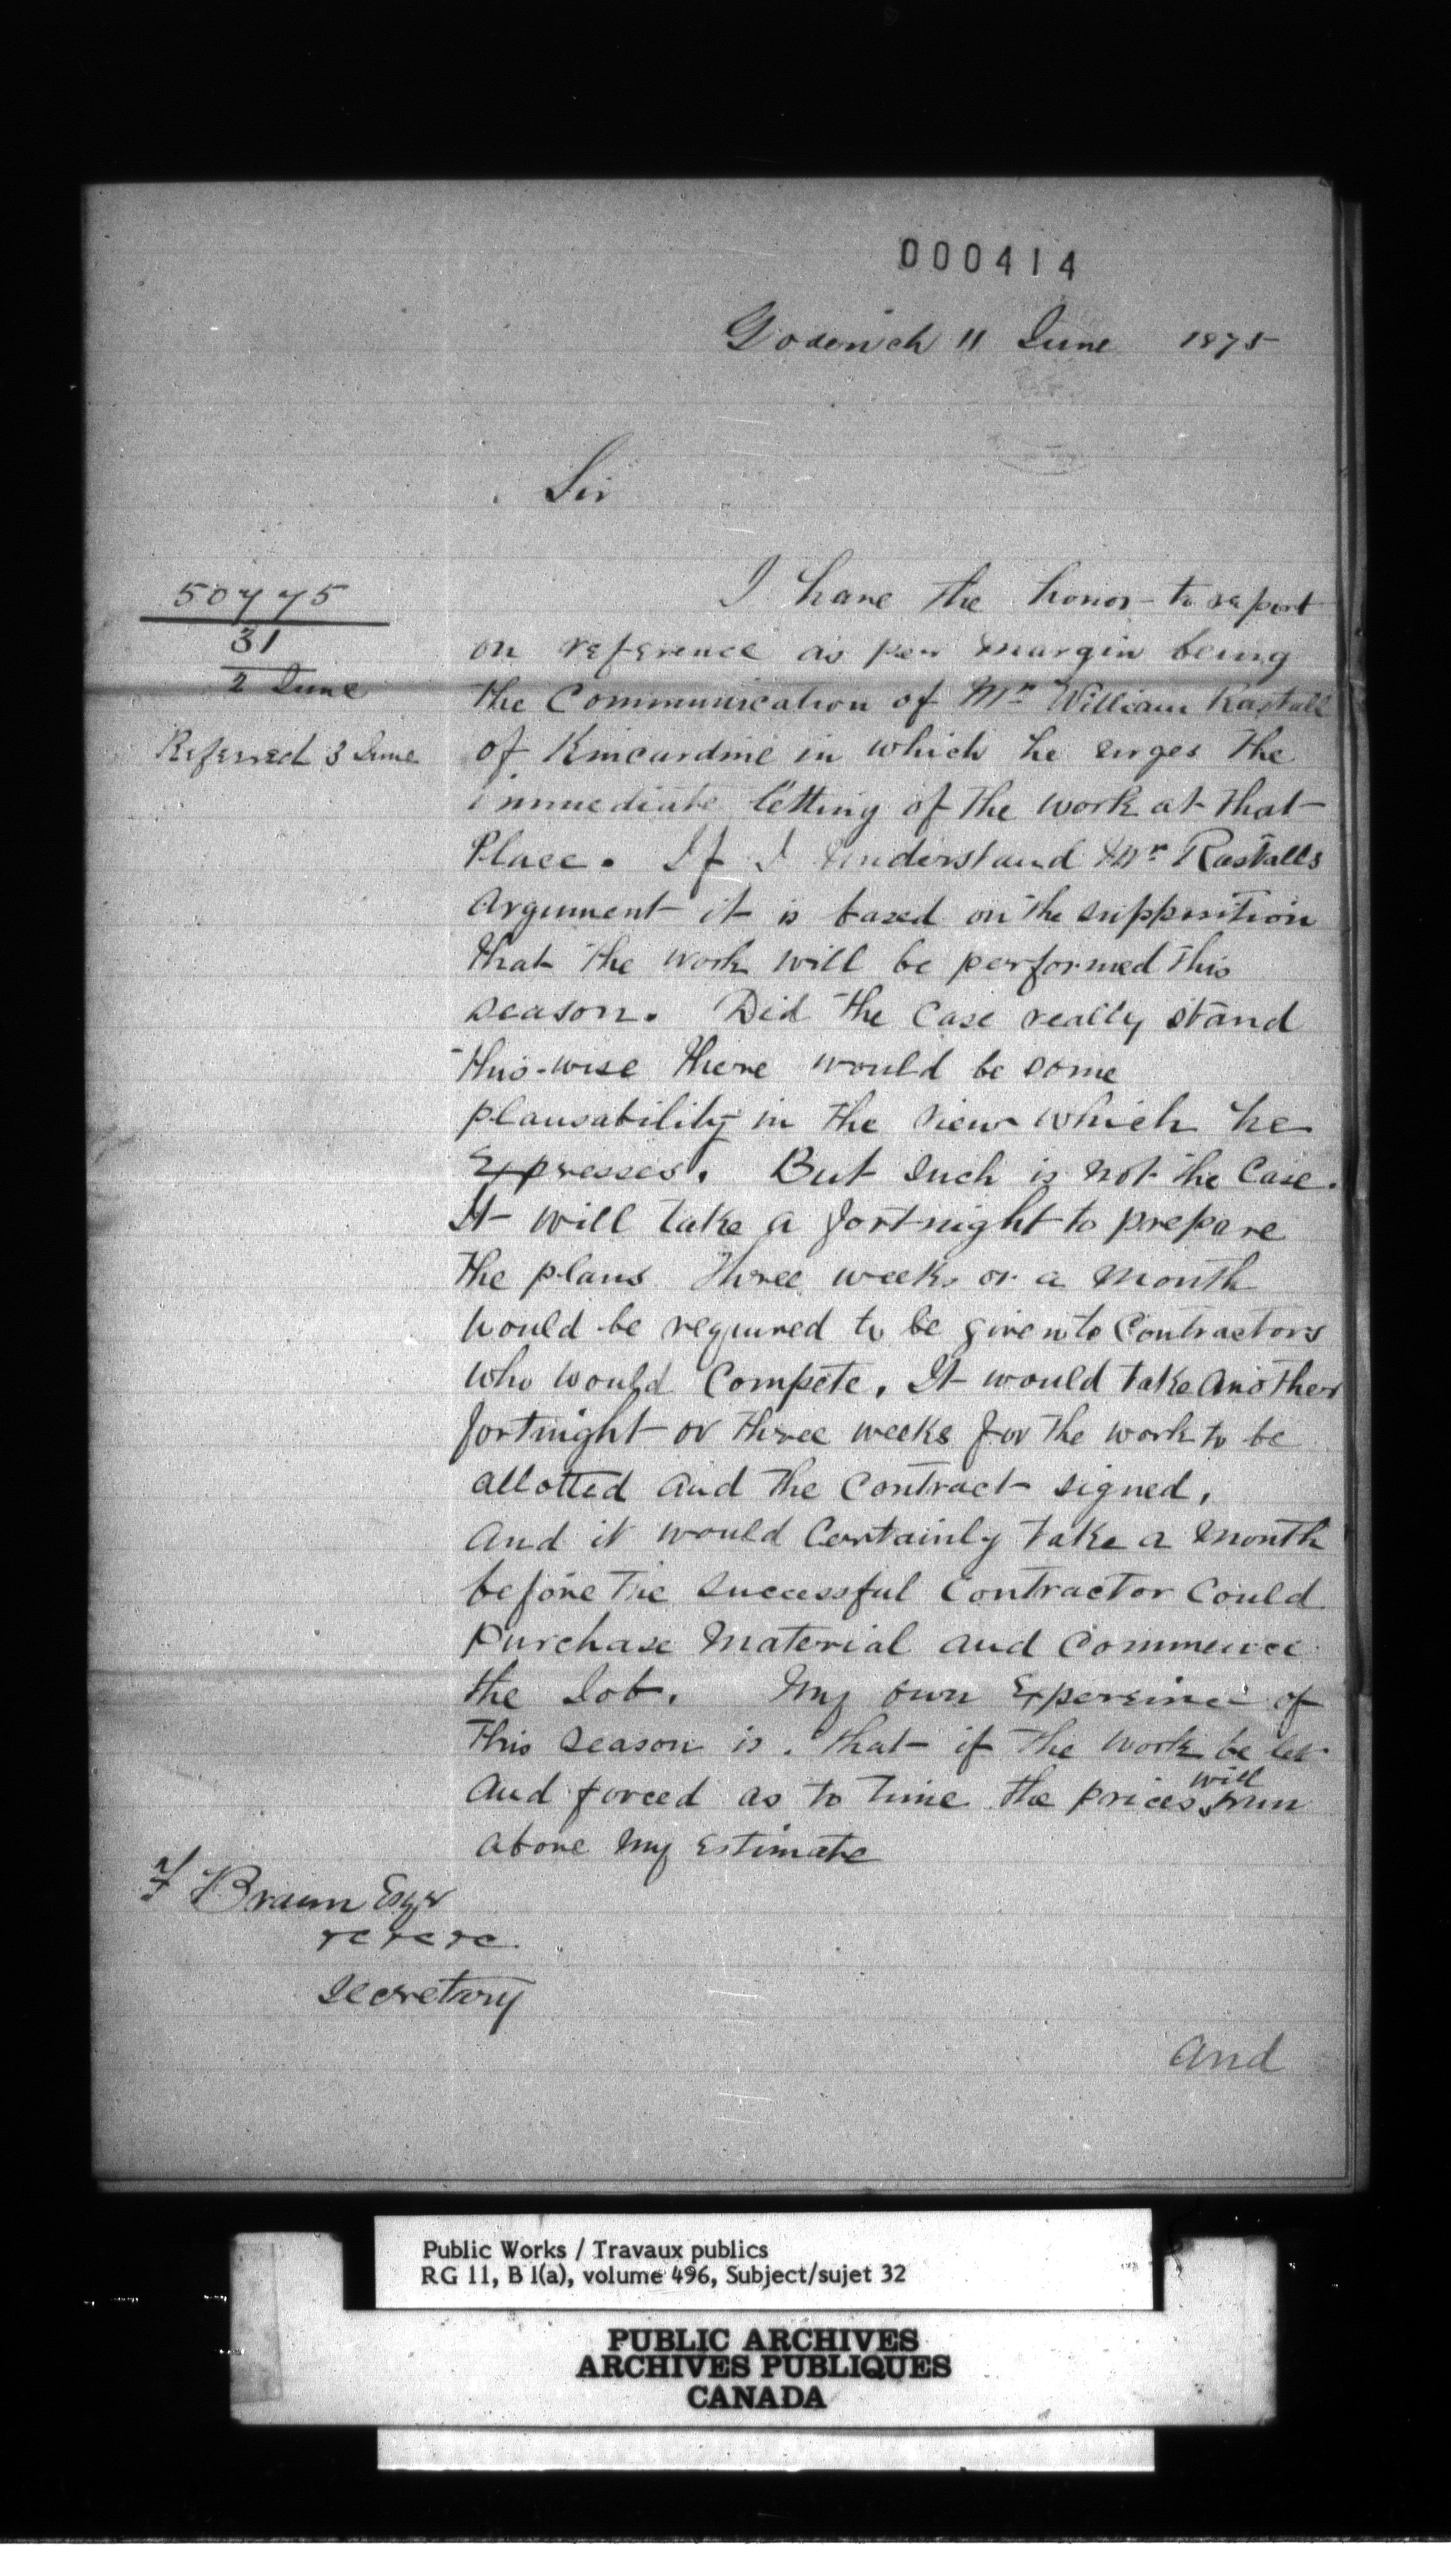 000414
Goderich 11 June 1875
Sir
50775
31
2 June
Referred 3 June
I have the honor to report
on reference as per margin being
the Communication of Mr William Rastall
of Kincardine in which he urges the
immediate letting of the work at that
Place. If I understand Mr Rastalls
Argument it is based on the supposition
that the work will be performed this
season. Did the Case really stand
this-wise there would be some
plausability in the view which he
Expresses. But such is not the Case.
It will take a fortnight to prepare
the plans three weeks or a month
would be required to be given to Contractors
who would Compete. It would take another
fortnight or three weeks for the work to be
allotted and the Contract signed,
And it would Certainly take a month
before the successful Contractor Could
Purchase Material and Commence
the Job. My own Expereince of
this season is. that if the work be let
and forced as to time the prices will run
above my Estimate
F Braun Esqr
&c &c &c
Secretary
and
Public Works / Travaux publics
RG 11, B 1(a), volume 496, Subject/sujet 32
PUBLIC ARCHIVES
ARCHIVES PUBLIQUES
CANADA